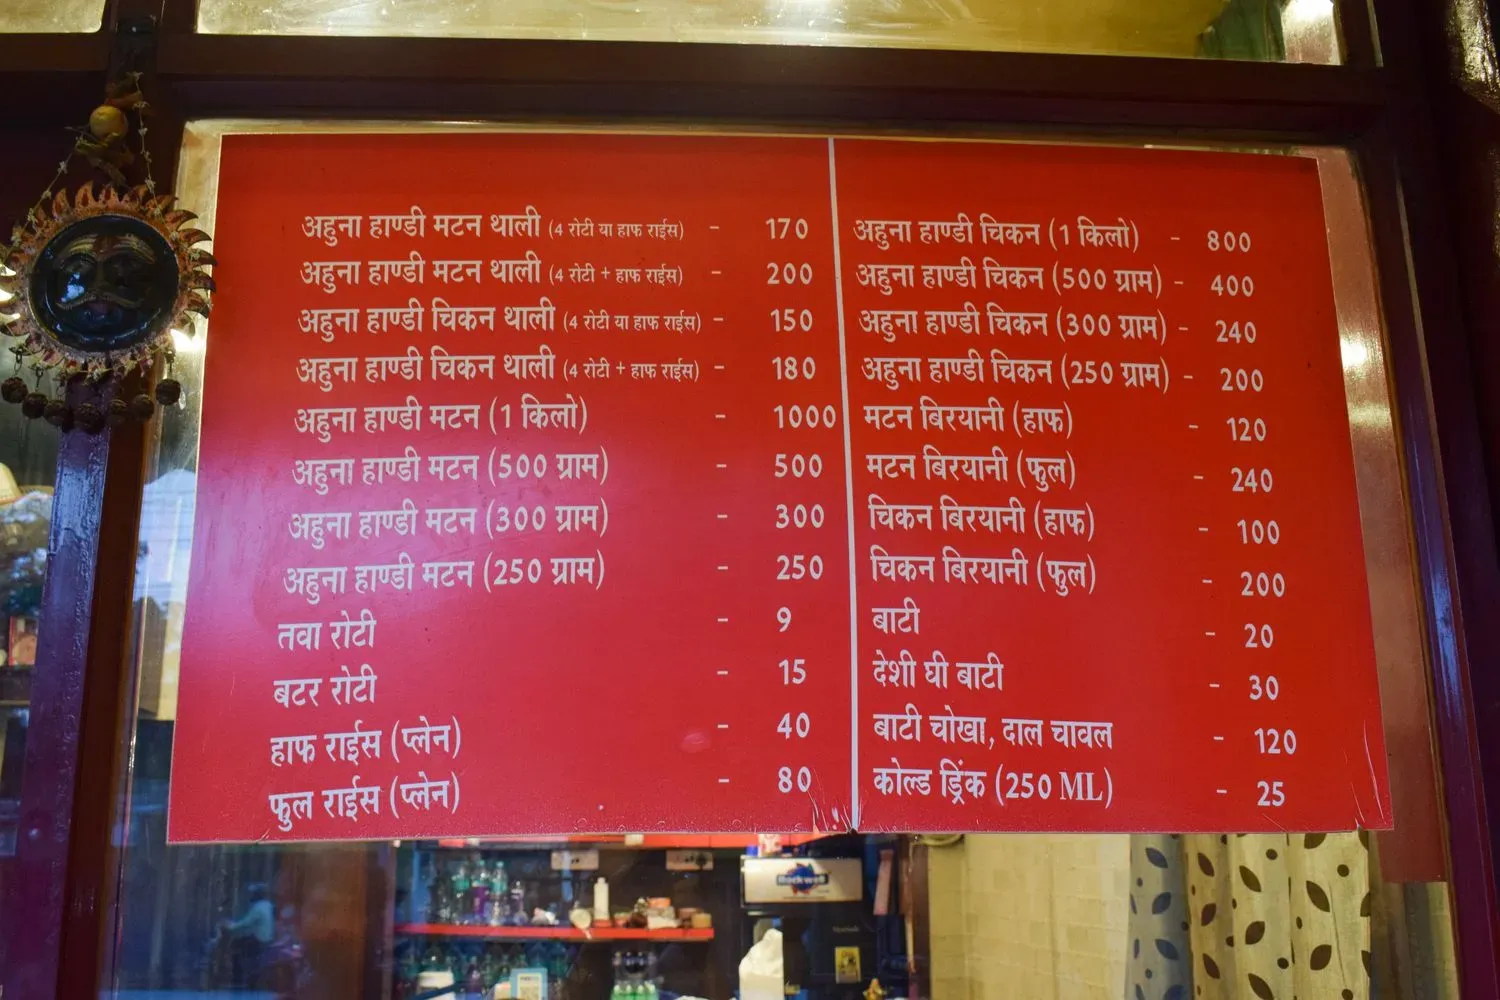 अहुना हाण्डी मटन थाली (4 रोटी या हाफ राईस) - 170
अहुना हाण्डी मटन थाली (4 रोटी + हाफ राईस) - 200
अहुना हाण्डी चिकन थाली (4 रोटी या हाफ राईस) - 150
अहुना हाण्डी चिकन थाली (4 रोटी + हाफ राईस) - 180
अहुना हाण्डी मटन (1 किलो) - 1000
अहुना हाण्डी मटन (500 ग्राम) - 500
अहुना हाण्डी मटन (300 ग्राम) - 300
अहुना हाण्डी मटन (250 ग्राम) - 250
तवा रोटी - 9
बटर रोटी - 15
हाफ राईस (प्लेन) - 40
फुल राईस (प्लेन) - 80
अहुना हाण्डी चिकन (1 किलो) - 800
अहुना हाण्डी चिकन (500 ग्राम) - 400
अहुना हाण्डी चिकन (300 ग्राम) - 240
अहुना हाण्डी चिकन (250 ग्राम) - 200
मटन बिरयानी (हाफ) - 120
मटन बिरयानी (फुल) - 240
चिकन बिरयानी (हाफ) - 100
चिकन बिरयानी (फुल) - 200
बाटी - 20
देशी घी बाटी - 30
बाटी चोखा, दाल चावल - 120
कोल्ड ड्रिंक (250 ML) - 25